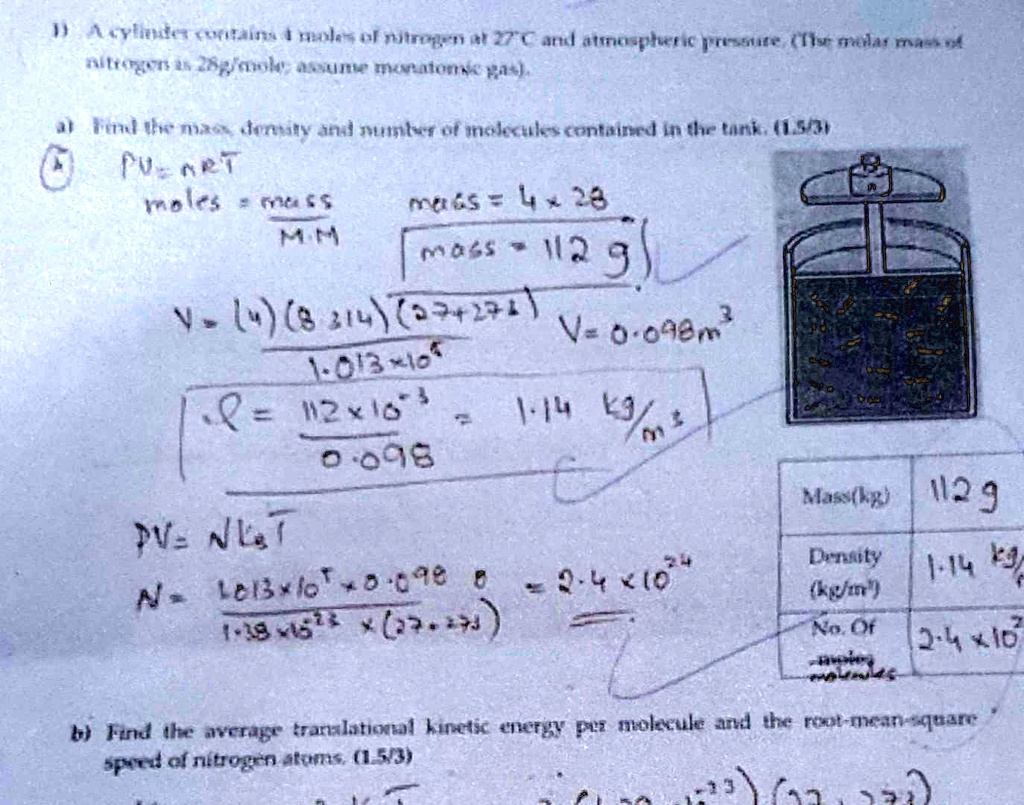 1) A cylinder contains 4 moles of nitrogen at 27°C and atmospheric pressure. (The molar mass of
nitrogen is 28g/mole; assume monatomic gas).
a) Find the mass, density and number of molecules contained in the tank. (1.5/3)
PV = nRT
moles = mass / M.M
mass = 4 × 28
mass = 112 g
V = (4)(8.314)(27+273) / 1.013×10⁵
V = 0.098m³
ρ = 112×10⁻³ / 0.098 = 1.14 kg/m³
Mass(kg) 112 g
PV = NkBT
Density (kg/m³) 1.14 kg/
N = 1.013×10⁵ × 0.098 / 1.38×10⁻²³ × (27+273) = 2.4×10²⁴
No. Of molecules 2.4×10²
b) Find the average translational kinetic energy per molecule and the root-mean-square
speed of nitrogen atoms. (1.5/3)